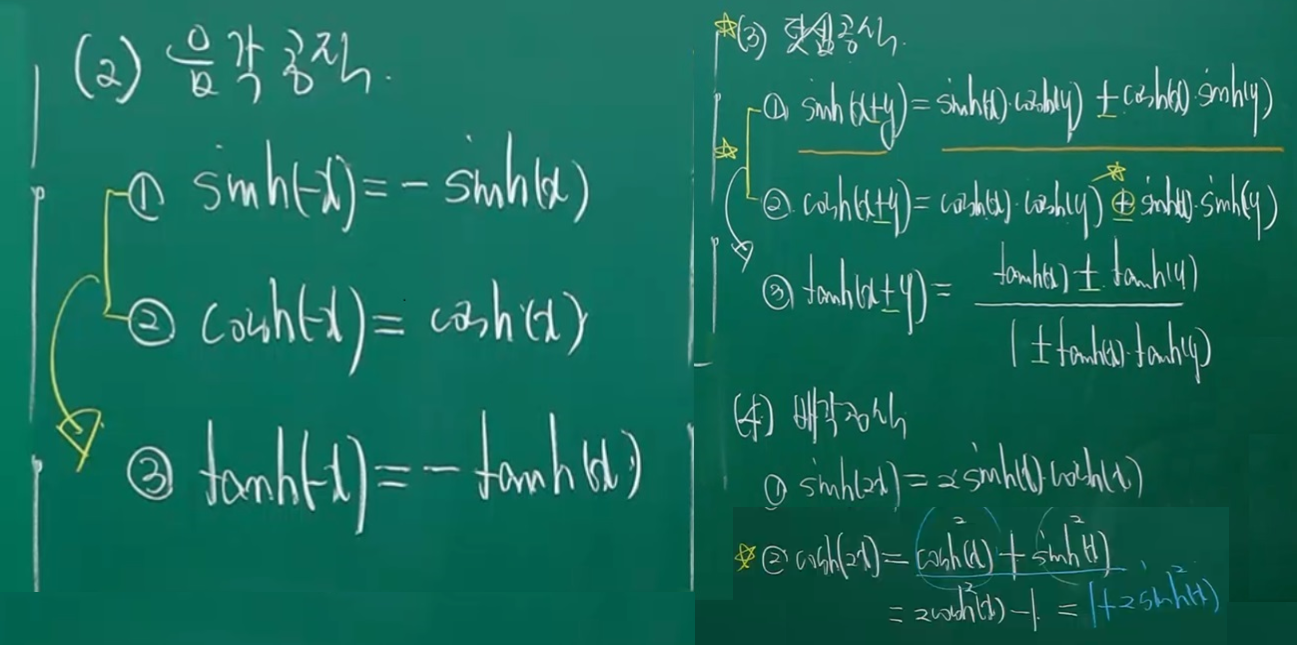 (2) 음각공식.
① sinh(-x) = - sinh(x)
② cosh(-x) = cosh(x)
③ tanh(-x) = - tanh(x)
☆(3) 덧셈공식.
① sinh(x±y) = sinh(x)·cosh(y) ± cosh(x)·sinh(y)
② cosh(x±y) = cosh(x)·cosh(y) ± sinh(x)·sinh(y)
③ tanh(x±y) = tanh(x) ± tanh(y) / 1 ± tanh(x)·tanh(y)
(4) 배각공식
① sinh(2x) = 2sinh(x)·cosh(x)
☆② cosh(2x) = cosh²(x) + sinh²(x)
= 2cosh²(x) - 1 = 1+2sinh²(x)